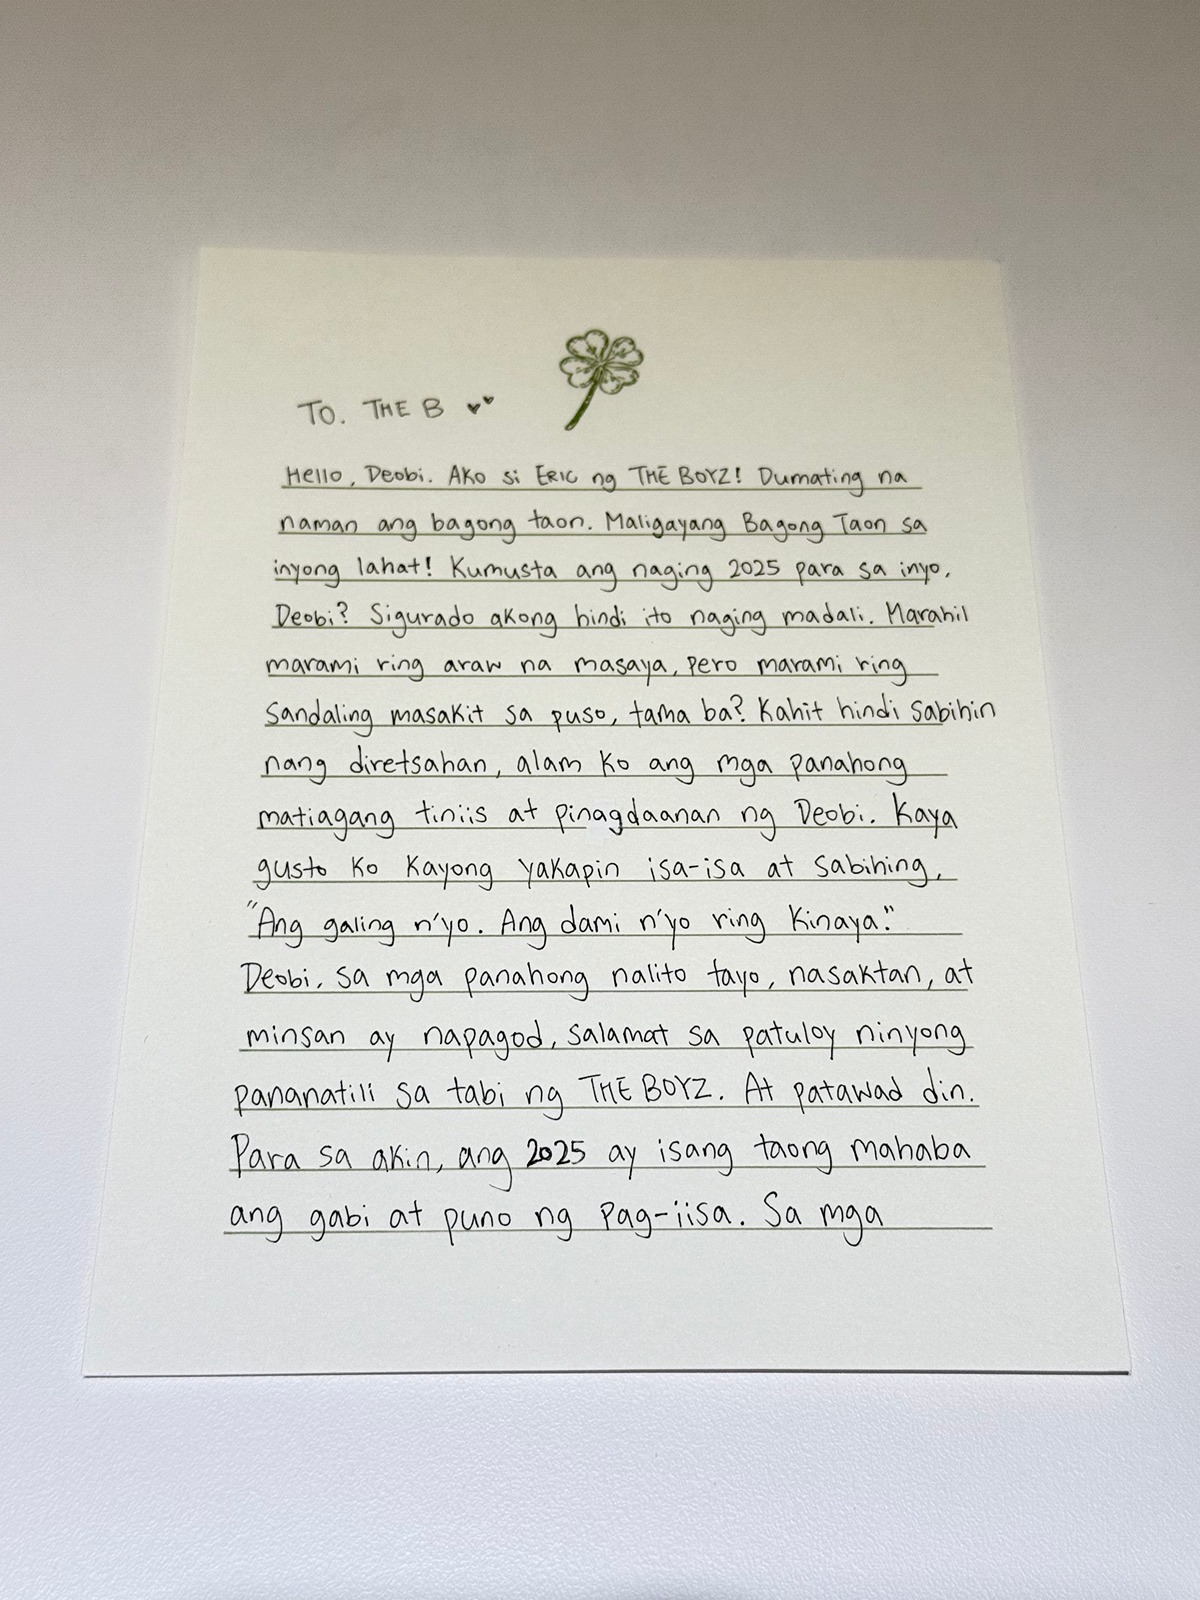 TO. THE B ♥♥
Hello, Deobi. Ako si ERIC ng THE BOYZ! Dumating na
naman ang bagong taon. Maligayang Bagong Taon sa
inyong lahat! Kumusta ang naging 2025 para sa inyo,
Deobi? Sigurado akong hindi ito naging madali. Marahil
marami ring araw na masaya, pero marami ring
sandaling masakit sa puso, tama ba? Kahit hindi sabihin
nang diretsahan, alam ko ang mga panahong
matiagang tiniis at pinagdaanan ng Deobi. Kaya
gusto ko kayong yakapin isa-isa at sabihing,
"Ang galing n'yo. Ang dami n'yo ring kinaya."
Deobi, sa mga panahong nalito tayo, nasaktan, at
minsan ay napagod, salamat sa patuloy ninyong
pananatili sa tabi ng THE BOYZ. At patawad din.
Para sa akin, ang 2025 ay isang taong mahaba
ang gabi at puno ng pag-iisa. Sa mga